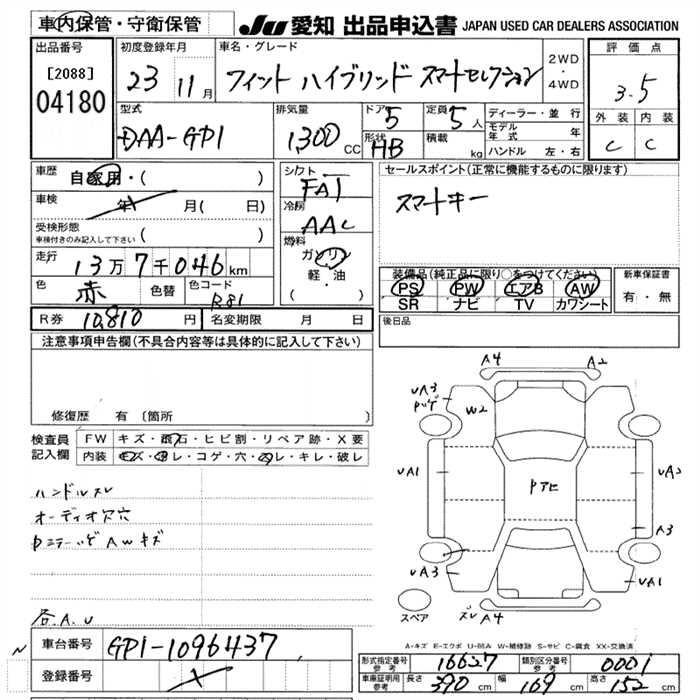 車内保管・守衛保管
JU 愛知 出品申込書 JAPAN USED CAR DEALERS ASSOCIATION
出品番号
[2088]
04180
初度登録年月
23 11月
車名・グレード
フィット ハイブリッド スマートセレクション
2WD
・
4WD
評価点
3.5
外装 内装
C C
型式
DAA-GP1
排気量
1,300 CC
ドア 5
形状 HB
定員 5人
積載 kg
ディーラー・並行
モデル年式 年
ハンドル 左・右
車歴
自家用・( )
車検
年 月( 日)
受検形態
車検付きのみ記入して下さい ( )
走行
13万7千046km
色 赤 色替 色コード R81
シフト FAT
冷房 AAC
燃料
ガソリン
軽・油
( ・ )
セールスポイント(正常に機能するものに限ります)
スマートキー
装備品(純正品に限り○をつけてください)
PS PW エアB AW
SR ナビ TV カワシート
新車保証書
有・無
R券 10,810円 名変期限 月 日
後日品
注意事項申告欄(不具合内容等は具体的に記入して下さい)
修復歴 有 〔箇所 〕
検査員記入欄
FW キズ・飛石・ヒビ割・リペア跡・X要
内装 キズ・汚レ・コゲ・穴・スレ・キレ・破レ
ハンドルスレ
オーディオ穴
AWキズ
各A.U
A4 A2
UA3
W2
UA1
PアE
A3
UA3
UA1
スレ A4
スペア
A-キズ E-エクボ U-凹み W-補修跡 S-サビ C-腐食 XX-交換済
車台番号 GP1-1096437
登録番号
形式指定番号 参考 16627 類別区分番号 参考 0001
車庫証明用 参考 長さ 390cm 幅 169cm 高さ 152cm